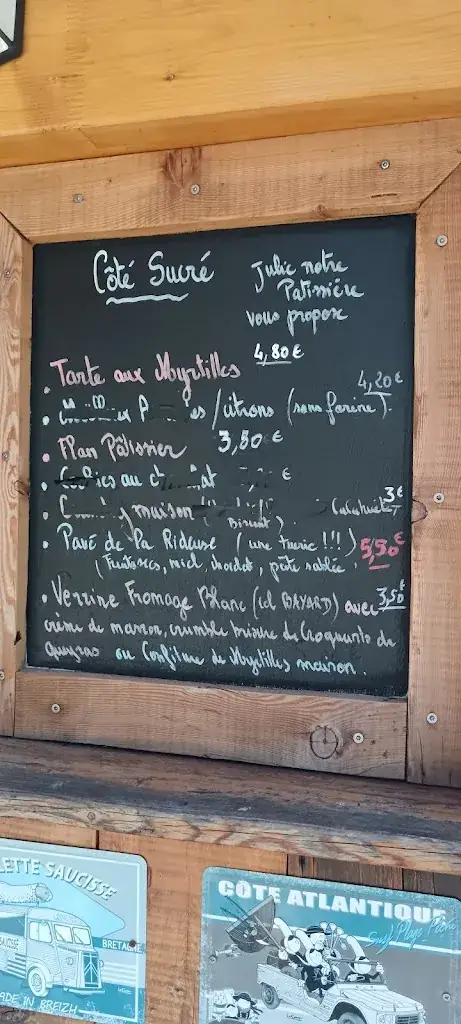 Côté Sucré
Julie notre
Patissière
vous propose
Tarte aux Myrtilles 4,80€
/citrons (sans farine). 4,20€
Flan Pâtissier 3,50€
Cookies au €
maison Cacahuète 3€
Biscuit).
Pavé de la Rideuse (une tuerie !!!) 5,50€
miel, chocolat, pâte sablée.
Verrine Fromage Blanc (cl BAYARD) avec 3,50€
crème de marron, crumble brisure de Croquants du
queyras ou Confiture de Myrtilles maison.
LETTE SAUCISSE
BRETAGNE
MADE IN BREIZH
CÔTE ATLANTIQUE
Surf Plage Pêche